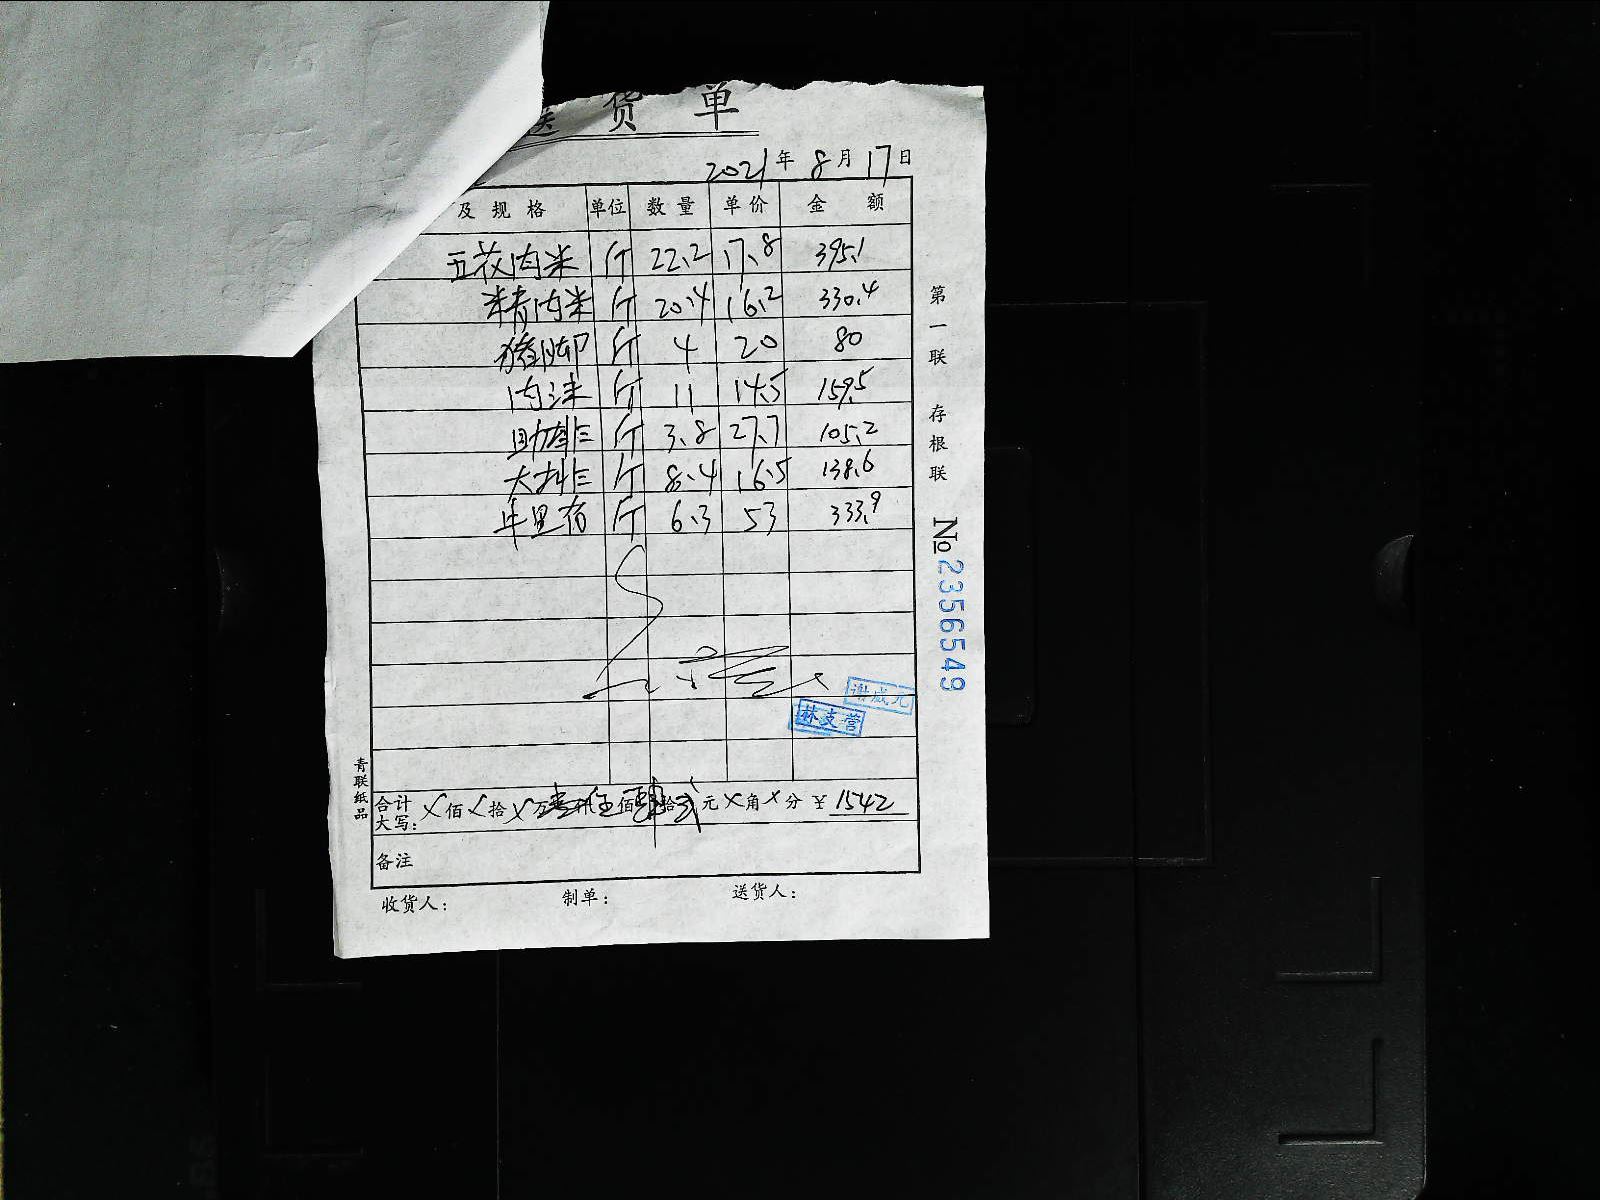 送货单
2021年8月17日
及规格 单位 数量 单价 金额
五花肉米 斤 22.2 17.8 395.1
精肉米 斤 20.4 16.2 330.4
猪脚 斤 4 20 80
肉沫 斤 11 14.5 159.5
助排 斤 3.8 27.7 105.2
大排 斤 8.4 16.5 138.6
牛里脊 斤 6.3 53 333.9
谢成元
林支营
合计大写: 乂佰乂拾乂万壹仟伍佰肆拾贰元乂角乂分 ¥1542
备注
收货人: 制单: 送货人:
第一联 存根联
No 2356549
青联纸品